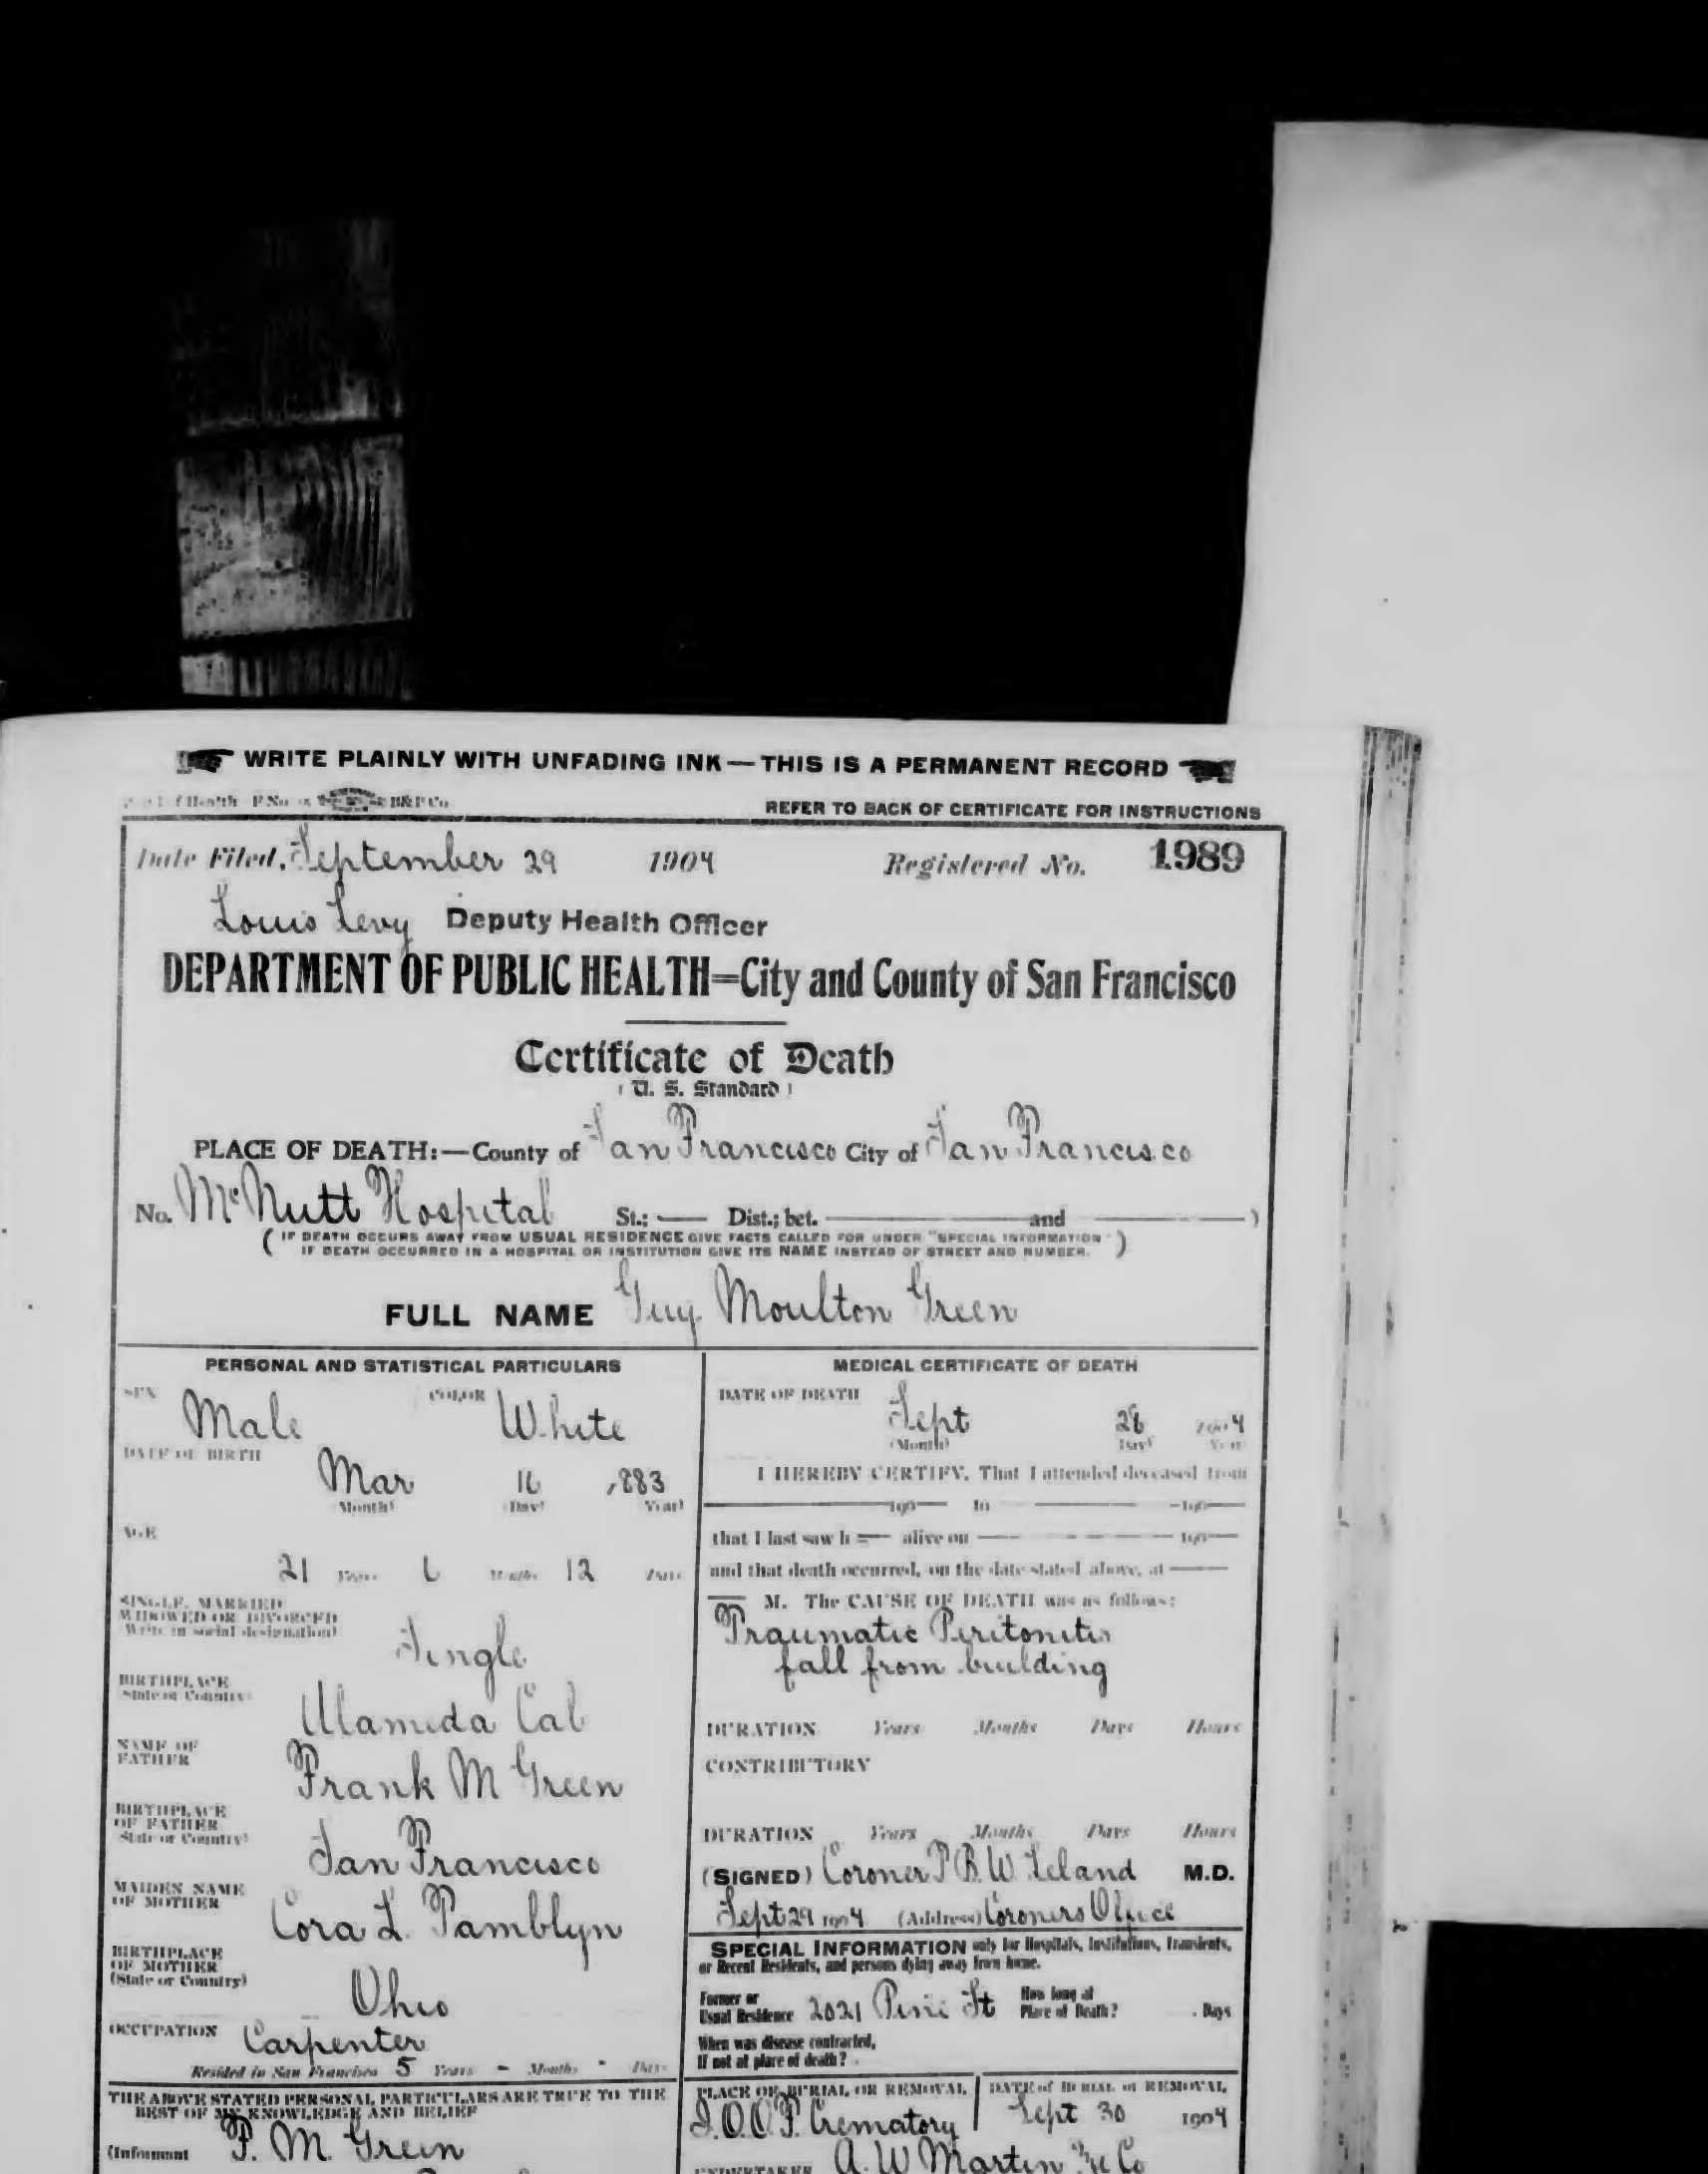 WRITE PLAINLY WITH UNFADING INK — THIS IS A PERMANENT RECORD
B&P Co
REFER TO BACK OF CERTIFICATE FOR INSTRUCTIONS
Date Filed, September 29 1904 Registered No. 1989
Louis Levy Deputy Health Officer
DEPARTMENT OF PUBLIC HEALTH=City and County of San Francisco
Certificate of Death
(U. S. Standard)
PLACE OF DEATH:—County of San Francisco City of San Francisco
No. McNutt Hospital St.; — Dist.; bet. — and — )
( IF DEATH OCCURS AWAY FROM USUAL RESIDENCE GIVE FACTS CALLED FOR UNDER "SPECIAL INFORMATION"
IF DEATH OCCURRED IN A HOSPITAL OR INSTITUTION GIVE ITS NAME INSTEAD OF STREET AND NUMBER. )
FULL NAME Guy Moulton Green
PERSONAL AND STATISTICAL PARTICULARS
SEX Male COLOR White
DATE OF BIRTH
Mar 16 1883
(Month) (Day) (Year)
AGE
21 Years 6 Months 12 Days
SINGLE, MARRIED
WIDOWED OR DIVORCED
(Write in social designation) Single
BIRTHPLACE
(State or Country) Alameda Cal
NAME OF
FATHER Frank M Green
BIRTHPLACE
OF FATHER
(State or Country) San Francisco
MAIDEN NAME
OF MOTHER Cora L. Tamblyn
BIRTHPLACE
OF MOTHER
(State or Country) Ohio
OCCUPATION Carpenter
Resided in San Francisco 5 Years - Months - Days
THE ABOVE STATED PERSONAL PARTICULARS ARE TRUE TO THE
BEST OF MY KNOWLEDGE AND BELIEF
(Informant F. M. Green
MEDICAL CERTIFICATE OF DEATH
DATE OF DEATH
Sept 28 1904
(Month) (Day) (Year)
I HEREBY CERTIFY, That I attended deceased from
— 190 — to — 190 —
that I last saw h — alive on — 190 —
and that death occurred, on the date stated above, at —
— M. The CAUSE OF DEATH was as follows:
Traumatic Peritonitis
fall from building
DURATION Years Months Days Hours
CONTRIBUTORY
DURATION Years Months Days Hours
(SIGNED) Coroner T B W Leland M.D.
Sept 29 1904 (Address) Coroners Office
SPECIAL INFORMATION only for Hospitals, Institutions, Transients,
or Recent Residents, and persons dying away from home.
Former or
Usual Residence 2021 Pine St How long at
Place of Death? Days
When was disease contracted,
If not at place of death?
PLACE OF BURIAL OR REMOVAL
I.O.O.F. Crematory
DATE of BURIAL or REMOVAL
Sept 30 1904
UNDERTAKER A. W Martin & Co